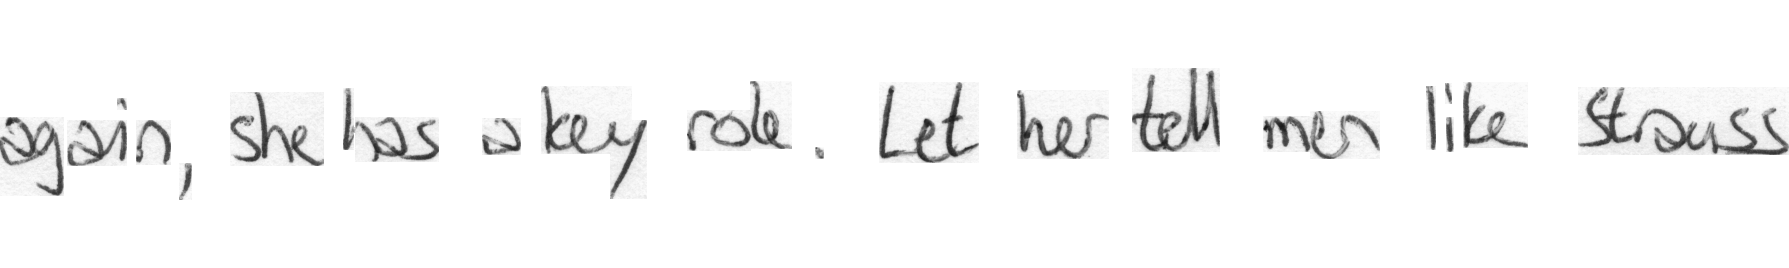 again, she has a key role. Let her tell men like Strauss